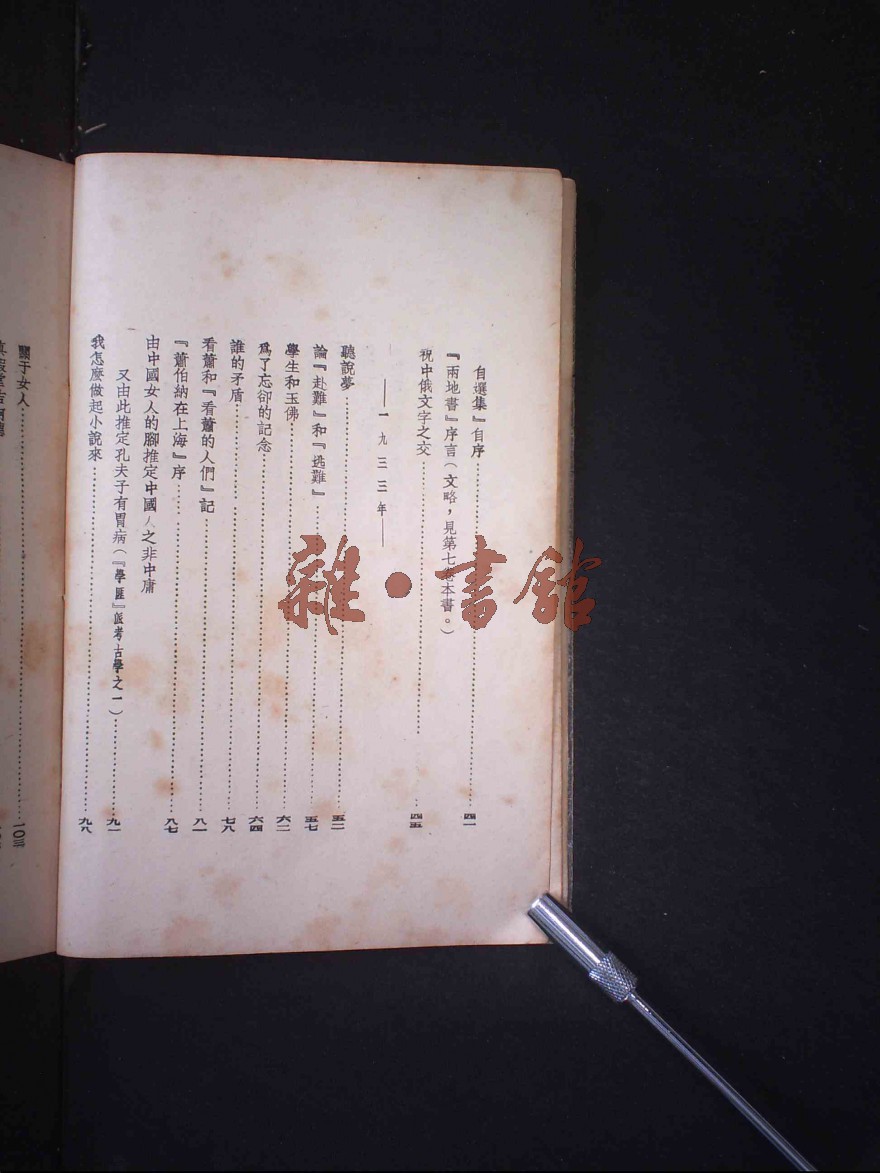 自選集』自序……四一
『兩地書』序言(文略，見第七卷本書。)
祝中俄文字之交……四五
——一九三三年——
聽說夢……五二
論『赴難』和『逃難』……五七
學生和玉佛……六二
爲了忘卻的記念……六四
誰的矛盾……七八
看蕭和『看蕭的人們』記……八一
『蕭伯納在上海』序……八七
由中國女人的腳推定中國人之非中庸
又由此推定孔夫子有胃病(『學匪』派考古學之一)……九一
我怎麼做起小說來……九八
關于女人……一〇三
雜·書館